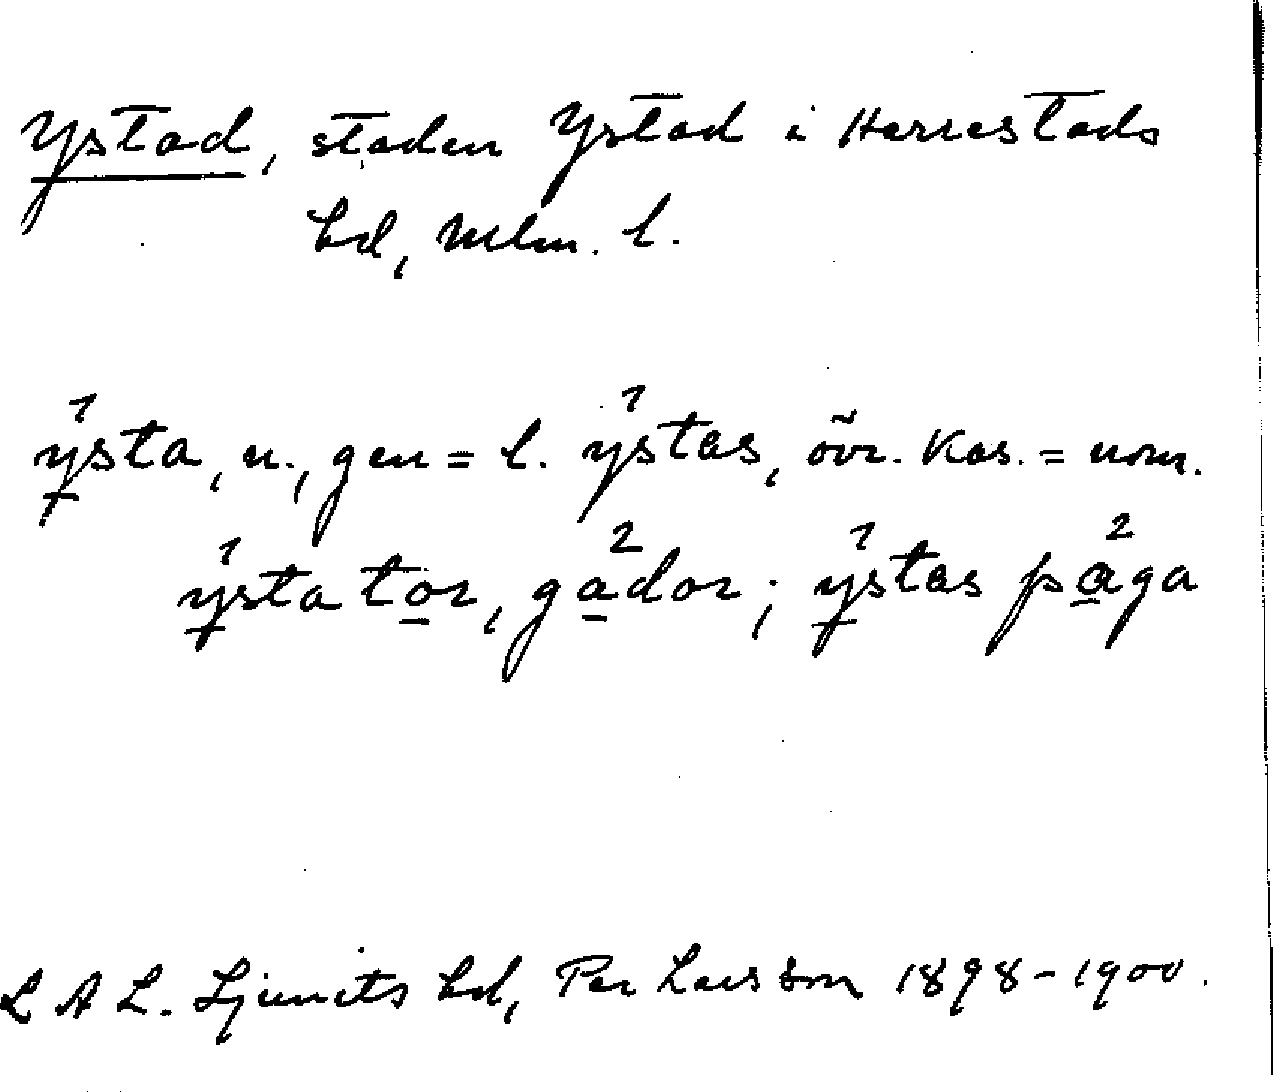 Ystad, staden Ystad i Herrestads
hd, Mlm. l.
y̵¹sta, n., gen = l. y¹stas, övr. kas. = nom.
y̵¹sta to̲r, ga̲²dor; y̵¹stas pa̲²ga
L A L. Ljunits hd, Per Larsson 1898-1900.